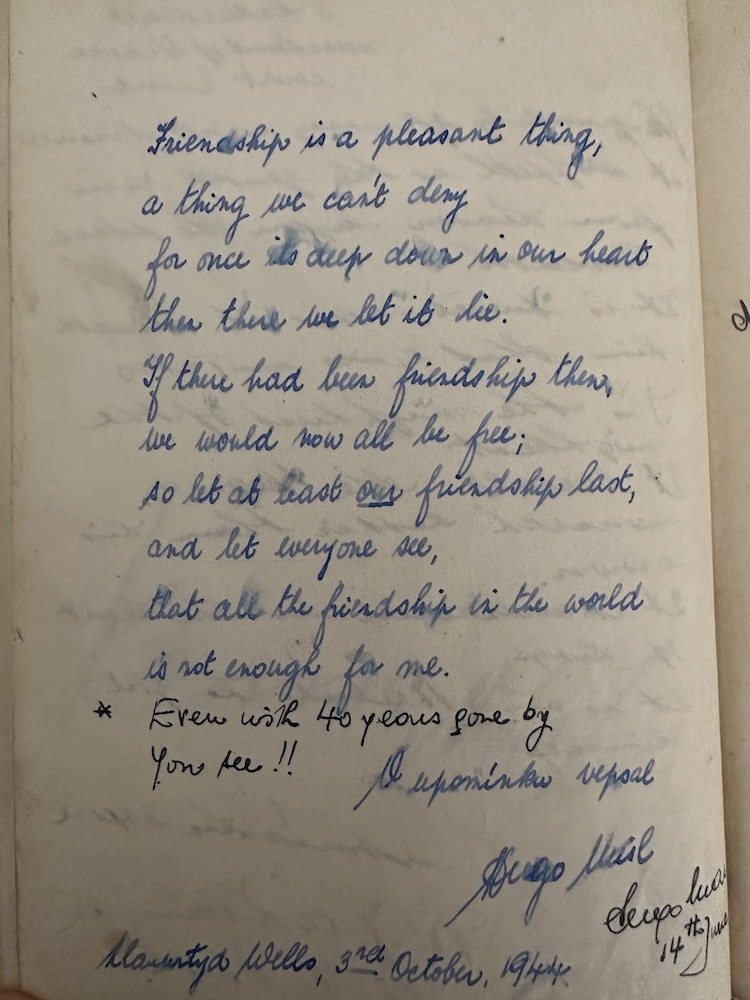 Friendship is a pleasant thing,
a thing we can't deny
for once its deep down in our heart
then there we let it lie.
If there had been friendship then,
we would now all be free;
so let at least our friendship last,
and let everyone see,
that all the friendship in the world
is not enough for me.
* Even with 40 years gone by
You see!!
V upomínku vepsal
Hugo
Hugo
14th June
Llanwrtyd Wells, 3rd October, 1944